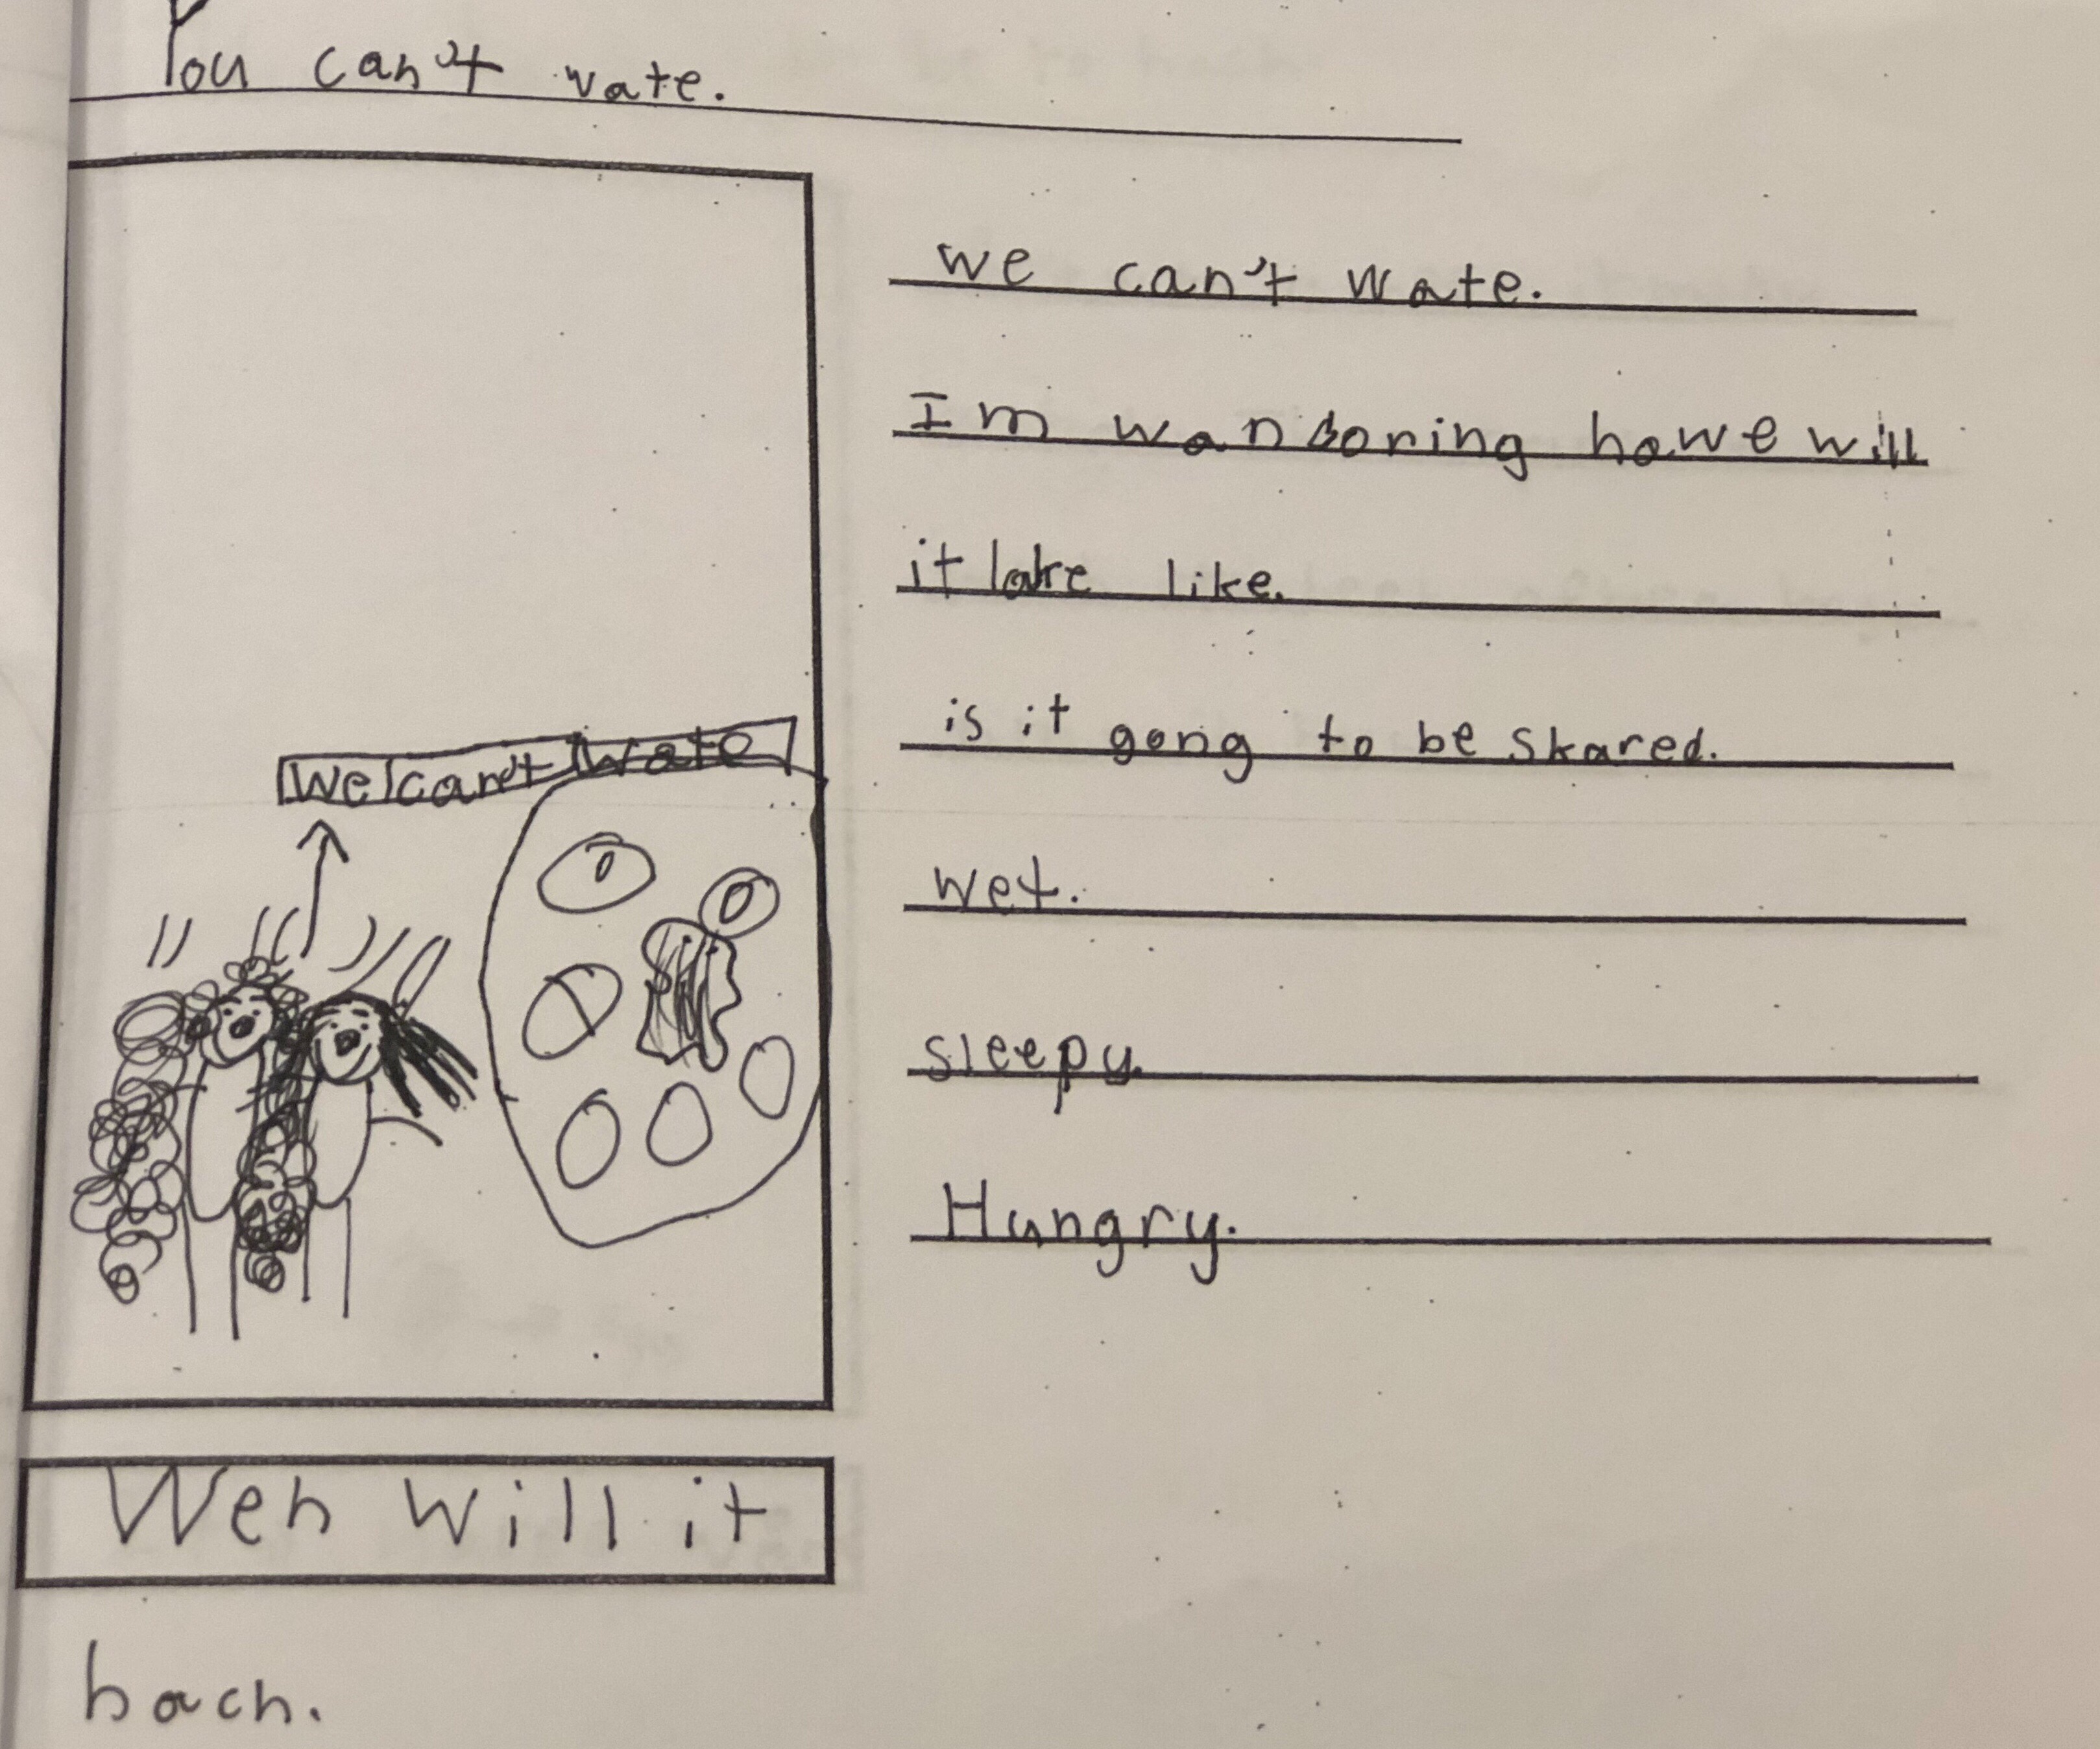 You can't wate.
we can't wate.
Im wandoring howe will
it loke like.
is it gonig to be skared.
wet.
sleepy.
Hungry.
We can't wate
Wen will it
hach.